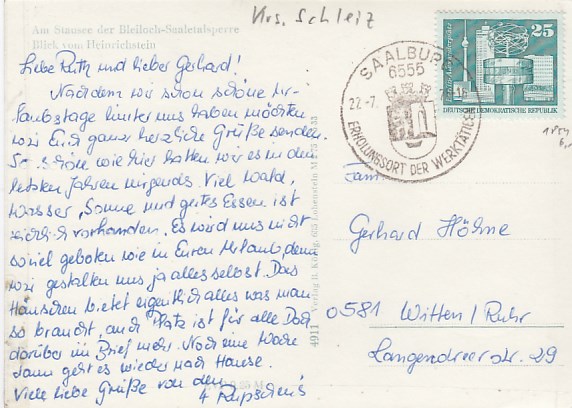 Krs. Schleiz
Am Stausee der Bleiloch-Saaletalsperre
Blick vom Heinrichstein
Liebe Ruth und lieber Gerhard!
Nachdem wir schon schöne Ur-
laubstage hinter uns haben möchten
wir Euch ganz herzliche Grüße senden.
So schön wie hier hatten wir es in den
letzten Jahren nirgends. Viel Wald,
Wasser, Sonne und gutes Essen ist
reichlich vorhanden. Es wird uns nicht
soviel geboten wie in Euren Urlaub, denn
wir gestalten uns ja alles selbst. Das
Häuschen bietet eigentlich alles was man
so braucht, auch Platz ist für alle Doch
darüber im Brief mehr. Noch eine Woche
dann geht es wieder nach Hause.
Viele liebe Grüße von den
4
25
DEUTSCHE DEMOKRATISCHE REPUBLIK
SAALBURG
6555
22.-7.
ERHOLUNGSORT DER WERKTÄTIGEN
Fam.
Gerhard Höhne
0581 Witten / Ruhr
Langendreer str. 29
4911 Verlag H. König, 685 Lobenstein